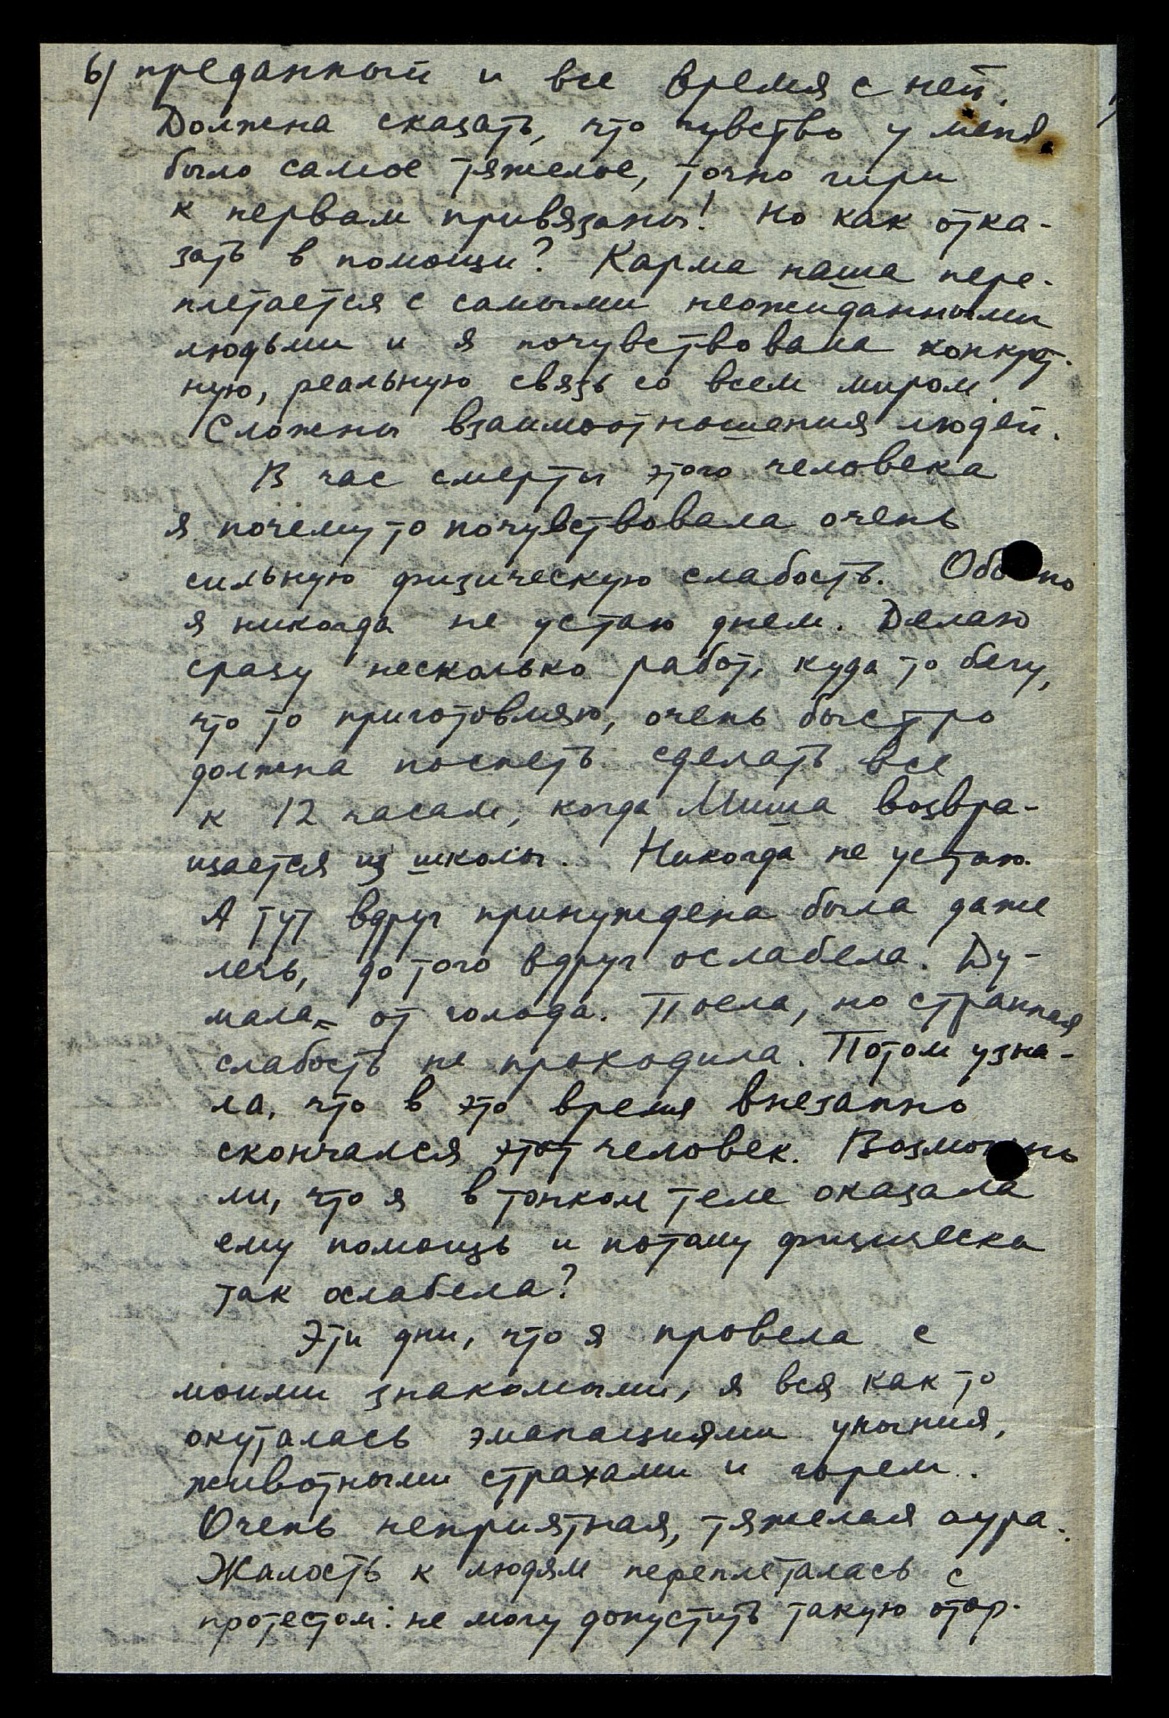 6) преданный и все время с ней.
Должна сказать, что чувство у меня
было самое тяжелое, точно гири
к нервам привязаны! Но как отка-
зать в помощи? Карма наша пере-
плетается с самыми неожиданными
людьми и я почувствовала конкрет-
ную, реальную связь со всем миром.
Сложны взаимоотношения людей.
В час смерти этого человека
я почему то почувствовала очень
сильную физическую слабость.
я никогда не устаю днем. Делаю
сразу несколько работ, куда то бегу,
что то приготовляю, очень быстро
должна поспеть сделать все
к 12 часам, когда Миша возвра-
щается из школы. Никогда не устаю.
А тут вдруг принуждена была даже
лечь, до того вдруг ослабела. Ду-
мала = от голода. Поела, но странная
слабость не проходила. Потом узна-
ла, что в это время внезапно
скончался этот человек.
ли, что я в тонком теле оказала
ему помощь и потому физически
так ослабела?
Эти дни, что я провела с
моими знакомыми, я вся как то
окуталась эманациями уныния,
животными страхами и горем..
Очень неприятная, тяжелая аура.
Жалость к людям переплеталась с
протестом: не могу допустить такую отор-